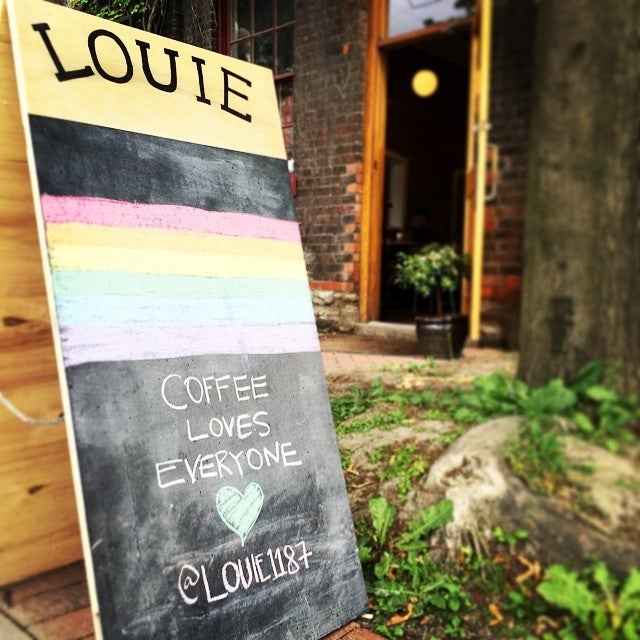 LOUIE
COFFEE
LOVES
EVERYONE
@LOUIE1187